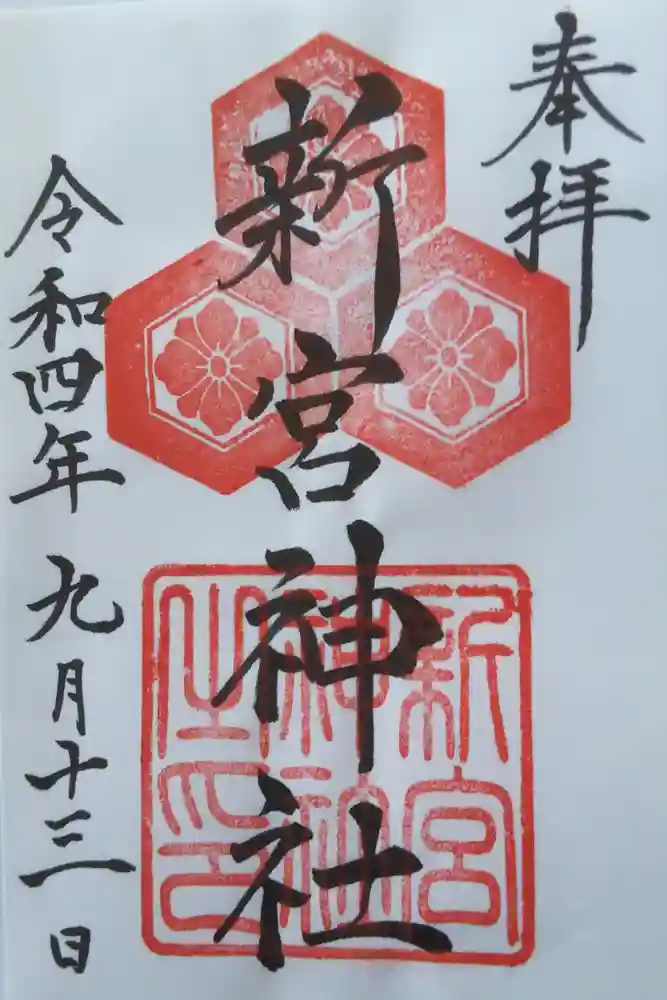 奉拝
新宮神社
新宮
神社
之印
令和四年 九月十三日